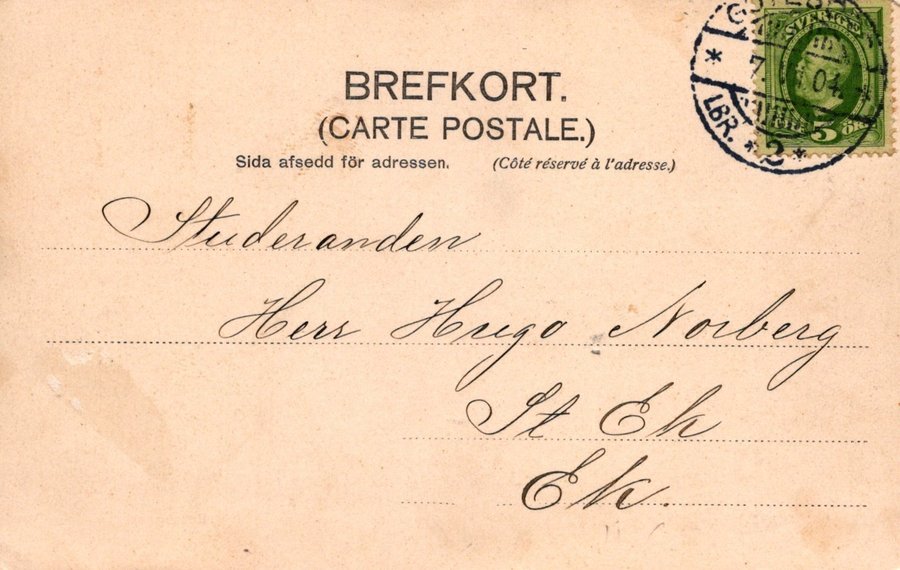 BREFKORT.
(CARTE POSTALE.)
Sida afsedd för adressen. (Côté réservé à l'adresse.)
SVERIGE
5 ÖRE
7 04
LBR.
2
Studeranden
Herr Hugo Norberg
St Ek
Ek.